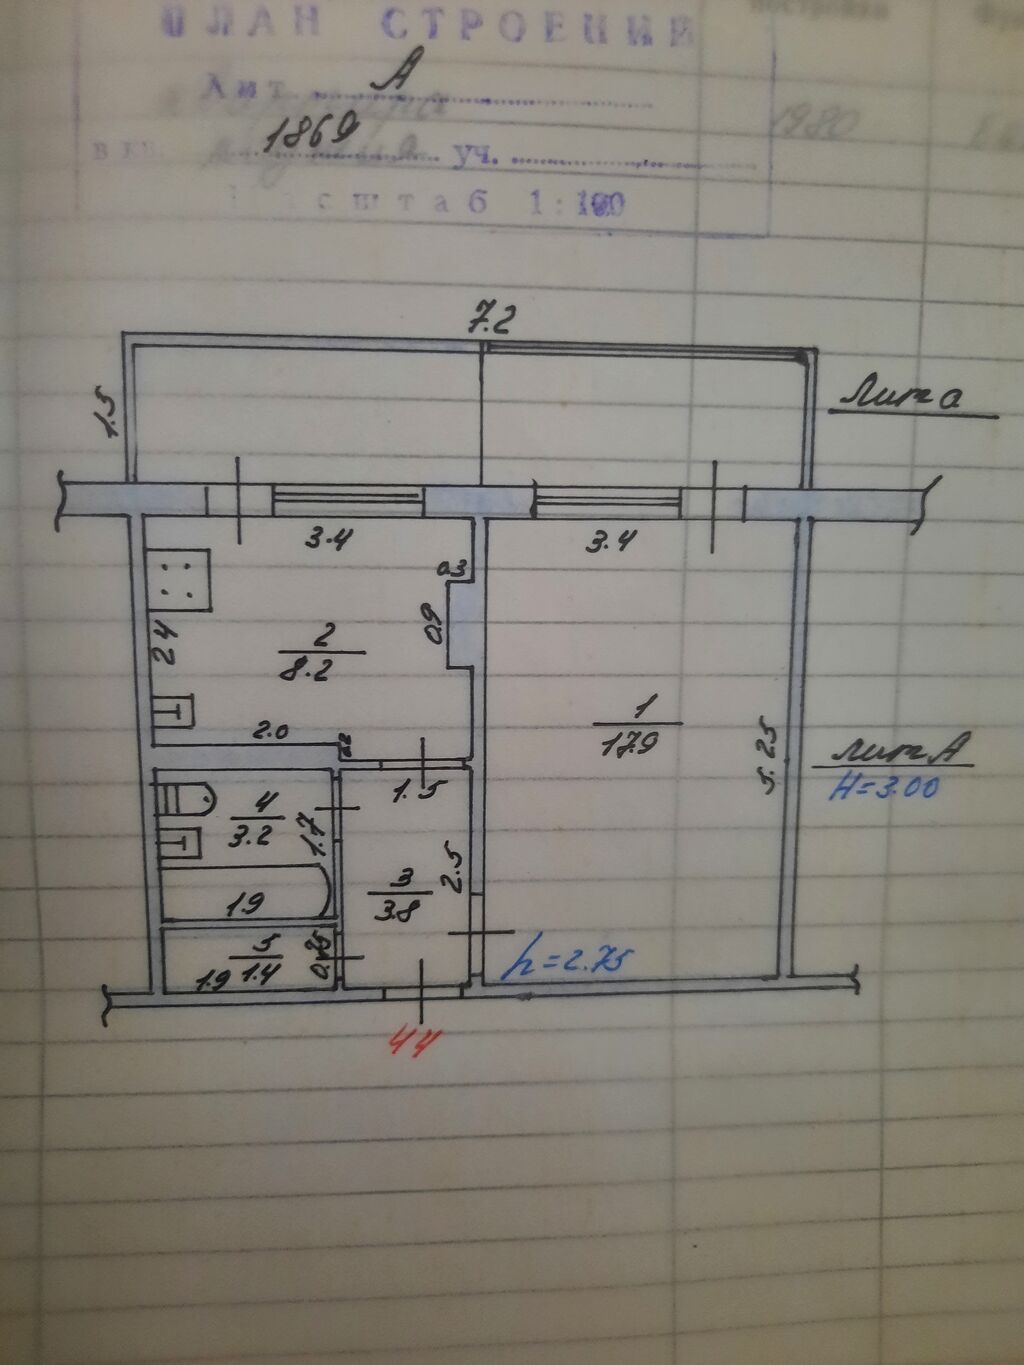 ПЛАН СТРОЕНИЯ
Лит. А
1869 уч.
Масштаб 1:100
1980
7.2
1.5
Лит а
3.4
3.4
0.3
0.9
2.4
2
8.2
2.0
0.2
1
17.9
5.25
лит А
H=3.00
1.5
4
3.2
1.7
3
3.8
2.5
1.9
5
1.4
0.75
1.9
h=2.75
44